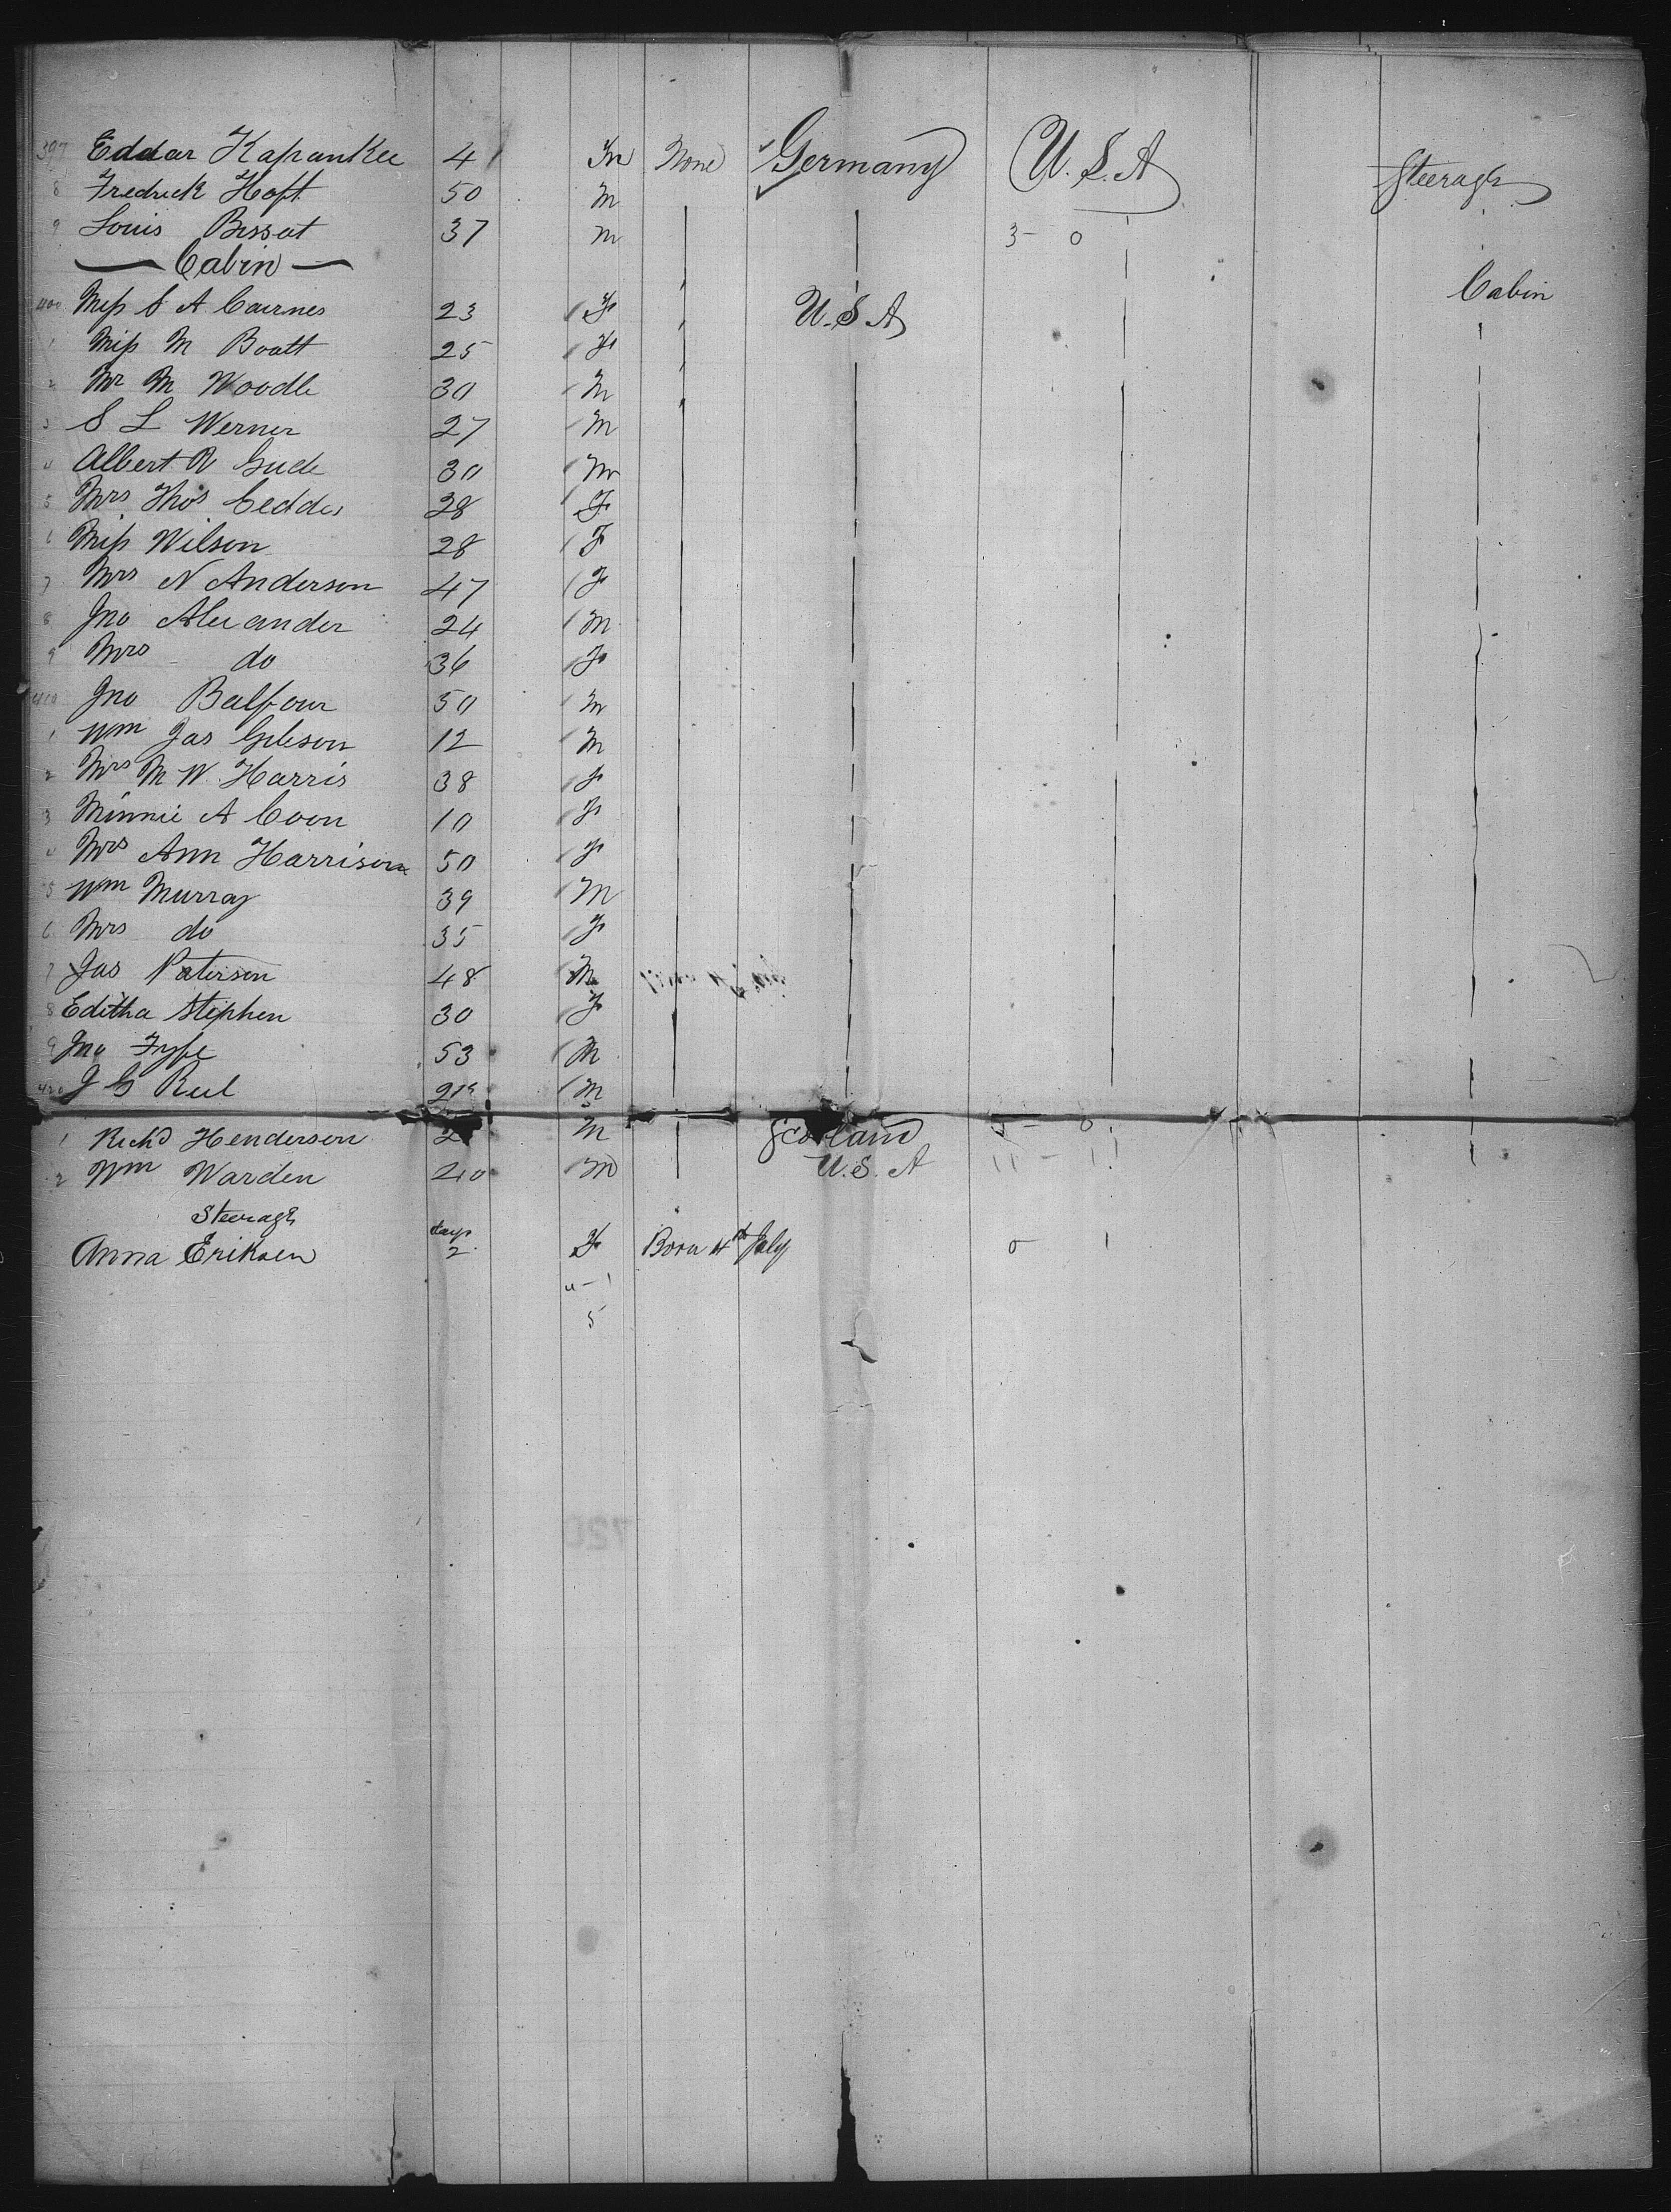 397 Eddar Kapankee 41 M None Germany U.S.A Steerage
8 Fredrick Hoft 50 M
9 Louis Bissat 37 M 3 - 0
Cabin
400 Miss S A Cairnes 23 F U.S.A Cabin
1 Miss M Boatt 25 F
2 Mr M Woodle 30 M
3 S L Werner 27 M
4 Albert R Gude 30 M
5 Mrs Thos Ceddes 28 F
6 Miss Wilson 28 F
7 Mrs N Anderson 47 F
8 Jno Alexander 24 M
9 Mrs do 36 F
410 Jno Balfour 50 M
1 Wm Jas Gibson 12 M
2 Mrs M W Harris 38 F
3 Minnie A Coon 10 F
4 Mrs Ann Harrison 50 F
5 Wm Murray 39 M
6 Mrs do 35 F
7 Jas Paterson 48 M
8 Editha Stephen 30 F
9 Jno Fyfe 53 M
420 J G Reel M
1 Richd Henderson M Scotland
2 Wm Warden 40 M U.S.A 11 - 11
Steerage
Anna Eriksen days 2 F Born 4th July 0 1
4 - 1
5